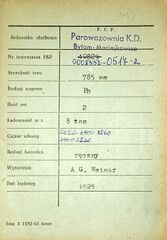 P. K. P.
Jednostka służbowa Parowozownia K.D.
Bytom-Maciejkowice
Nr inwentarza PKP
9004002-0517-2
Szerokość toru 785 mm
Rodzaj wagonu Ph
Ilość osi 2
Ładowność w t. 8 ton
Ciężar własny
Rodzaj hamulca ręczny
Wytwórnia A.G. Weimar
Rok budowy 1925